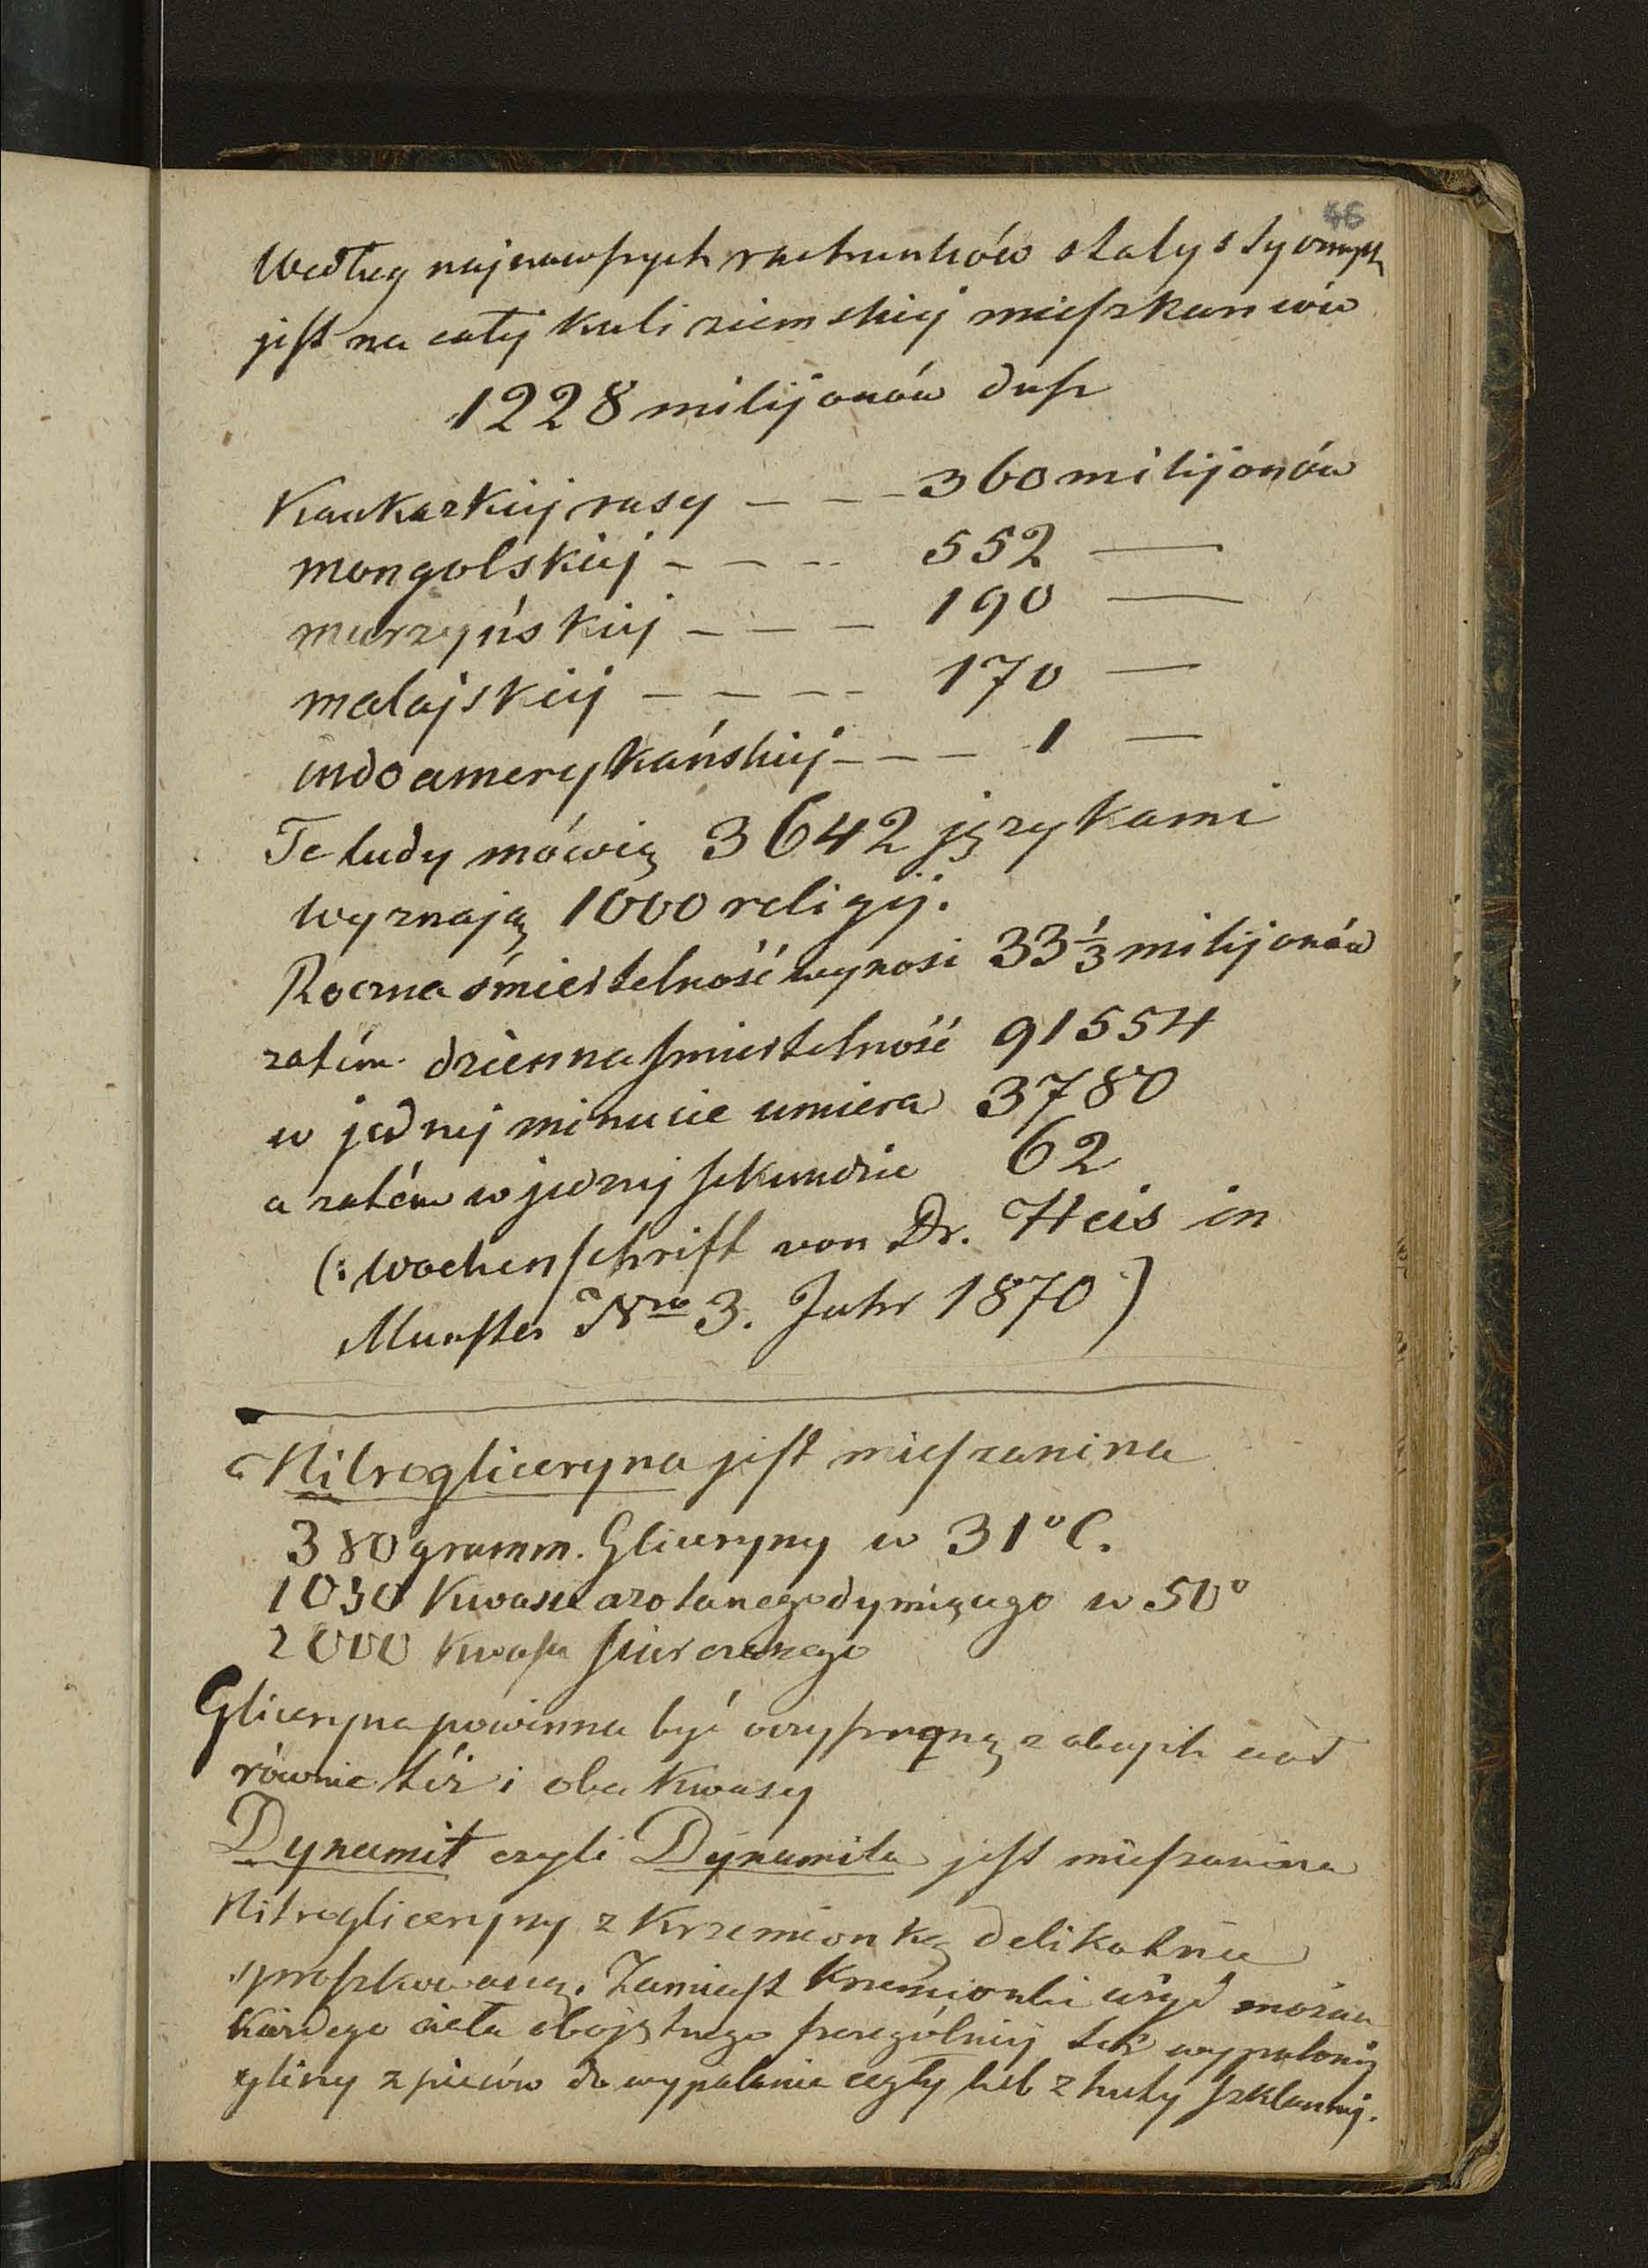 46
Według najnowszych rachunków statystycznych
jest na całej kuli ziemskiej mieszkańców
1228 milijonów dusz
Kaukazkiej rasy - - - 360 milijonów
mongolskiej - - - 552 —
murzyńskiej - - - 190 —
malajskiej - - - - 170 —
indoamerykańskiej - - - 1 —
Te ludy mówią 3642 językami
wyznają 1000 religij.
Roczna śmiertelność wynosi 33⅓ milijonów
zatém dzienna śmiertelność 91554
w jednej minucie umiera 3780
a zatém w jednej sekundzie 62
(: Wochenschrift von Dr. Heis in
Munster Nro 3. Jahr 1870 :)
Nitrogliceryna jest mieszanina
380 gramm. Gliceryny w 31° C.
1030 Kwasu azotanego dymiącego w 50°
2000 Kwasu siarczanego
Gliceryna powinna być oczyszczoną z obcych ciał
równie téż i oba kwasy
Dynamit czyli Dynamita jest mieszanina
Nitrogliceryny z Krzemionką delikatnie
sproszkowaną. Zamiast Krzemionki użyć można
Każdego ciała obojętnego szczególniej też wypalonej
gliny z pieców do wypalania cegły lub z huty szklannej.